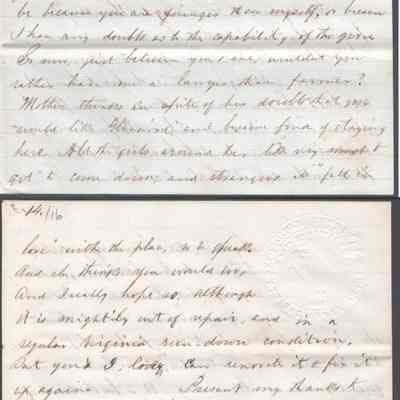 be because you are younger than myself, or because
I have any doubts as to the capability of the given
So now, just between you & me, wouldn't you
rather have me a lawyer than farmer?
Mother thinks in spite of her doubts that you
would like and become fond of staying
here. All the girls around her like very much to
get to come down, and strangers "fall in
14/16
love" with the place, so to speak.
And she thinks you would too,
And I really hope so, although
it is mightily out of repair, and in a
regular Virginia run down condition,
But you & I, can renovate it & fix it
up again. Present my thanks to